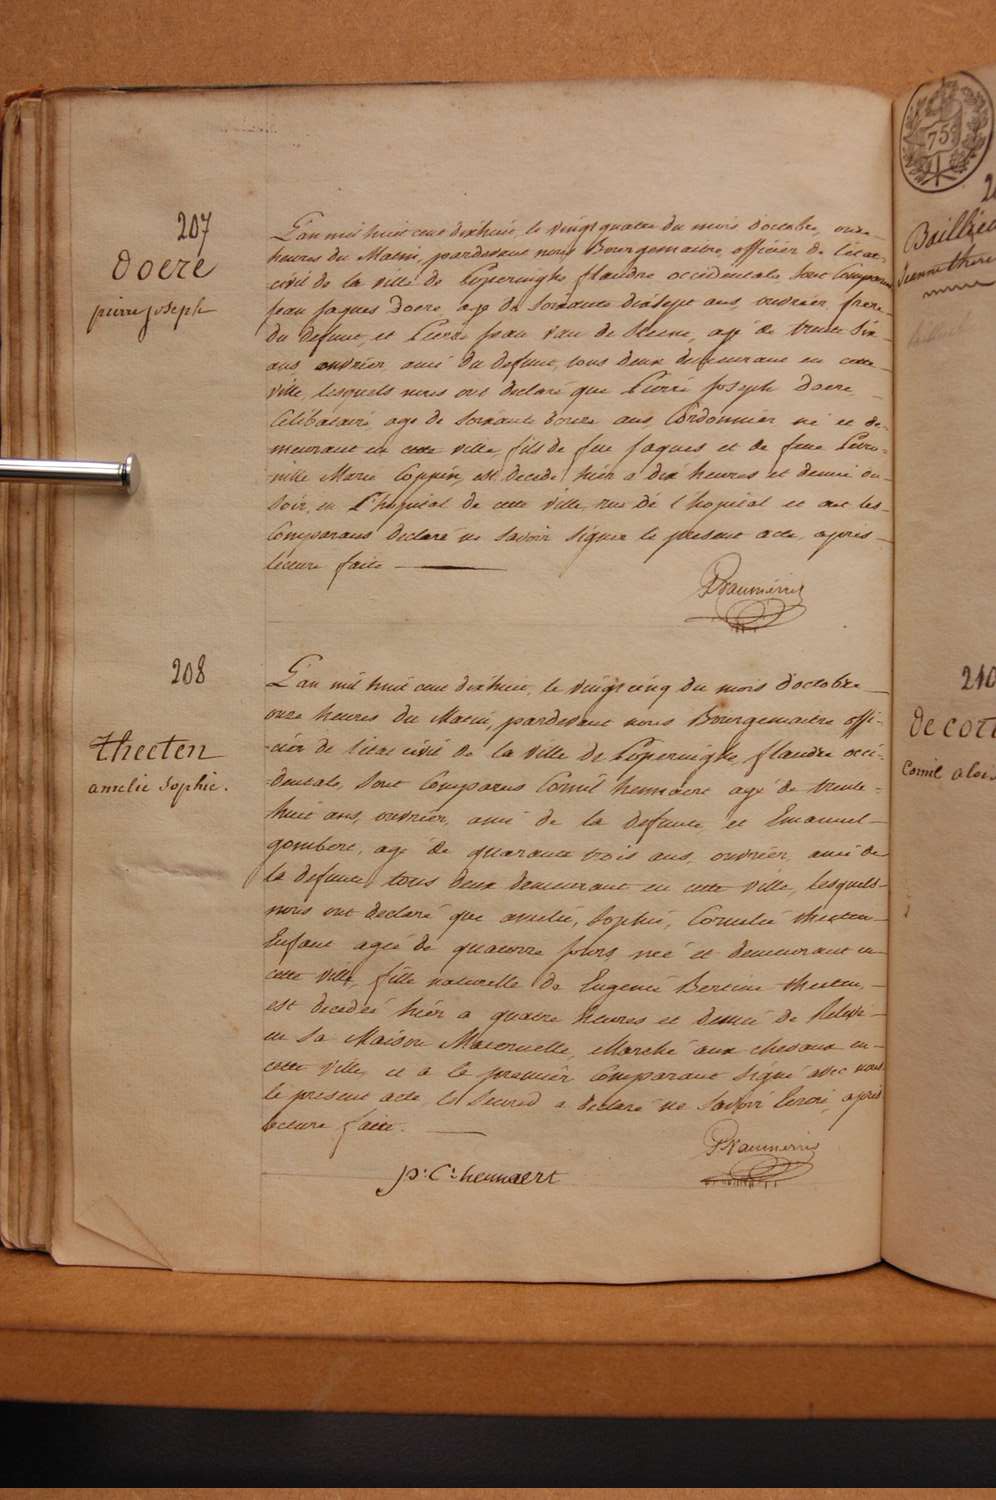 207
Doere
pierre joseph
L'an mil huit cent dixhuit, le vingt quatre du mois d'octobre, onze
heures du Matin, pardevant nous Bourgemaitre, officier de l'état
civil de la ville de Poperinghe, flandre occidentale, sont Comparus
jean jaques Doere, agé de soixante dixsept ans, ouvrier, frere
du defunt, et Pierre jean van de Steene, agé de trente six
ans ouvrier, ami du defunt, tous deux demeurant en cette
ville, lesquels nous ont declaré que Pierre joseph Doere,
Celibataire, agé de soixante douze ans, Cordonnier né et de-
meurant en cette ville, fils de feu jaques et de feue Petro-
nille Marie Coppin, est decedé hier a dix heures et demie du
soir, en l'hopital de cette ville, rue de l'hopital et ont les
Comparans declaré ne savoir signer le present acte, après
lecture faite
208
thecten
amelie sophie.
L'an mil huit cent dixhuit, le vingt cinq du mois d'octobre
onze heures du Matin, pardevant nous Bourgemaitre offi-
cier de l'etat civil de la ville de Poperinghe, flandre occi-
dentale, sont Comparus Cornil hennaert agé de trente-
huit ans, ouvrier, ami de la defunte, et Emanuel
gombert, agé de quarante trois ans, ouvrier, ami de
la defunte, tous deux demeurant en cette ville, lesquels
nous ont declaré que amelie, Sophie, Cornelie thecten
Enfant agée de quatorze jours, née et demeurant en
cette ville, fille naturelle de Eugenie thecten,
est decedée hier a quatre heures et demie de Relevé
en sa Maison Maternelle, Marché aux chevaux en
cette ville, et a le premier Comparant signé avec nous
le present acte, le second a declaré ne savoir Ecrire, après
lecture faite.
p: C: hennaert
75
Bailli
210
de cot
Cornil aloi